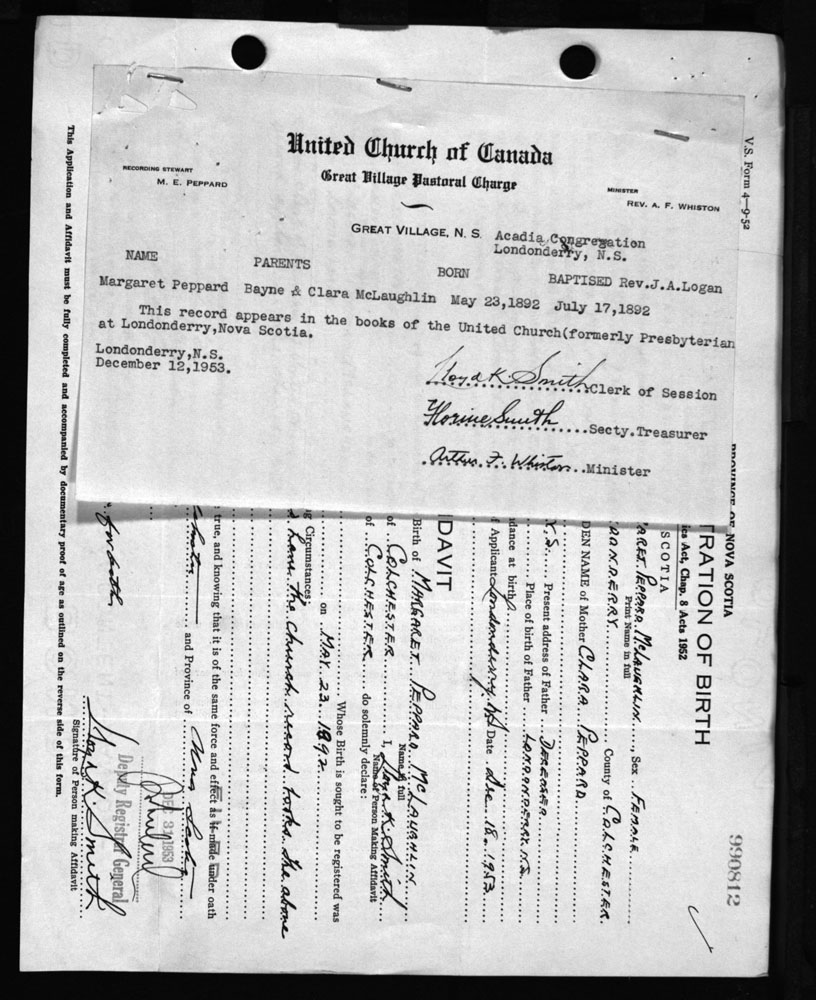 United Church of Canada
Great Village Pastoral Charge
RECORDING STEWART
M. E. PEPPARD
MINISTER
REV. A. F. WHISTON
GREAT VILLAGE, N. S. Acadia Congregation
Londonderry, N.S.
NAME PARENTS BORN BAPTISED Rev.J.A.Logan
Margaret Peppard Bayne & Clara McLaughlin May 23,1892 July 17,1892
This record appears in the books of the United Church(formerly Presbyterian
at Londonderry,Nova Scotia.
Londonderry,N.S.
December 12,1953.
Lloyd K. Smith Clerk of Session
Florine Smith Secty.Treasurer
Arthur F. Whiston Minister
V.S. Form 4—9-52
990812
PROVINCE OF NOVA SCOTIA
TRATION OF BIRTH
ics Act, Chap. 8 Acts 1952
SCOTIA
ARET PEPPARD McLAUGHLIN, Sex FEMALE
Print Name in full
ONDERRY County of COLCHESTER
DEN NAME of Mother CLARA PEPPARD
N.S. Present address of Father DECEASED
Place of birth of Father LONDONDERRY N.S.
dance at birth
f Applicant Londonderry NS Date Dec 18. 1953
DAVIT
Birth of MARGARET PEPPARD McLAUGHLIN
Name in full
of COLCHESTER I, Lloyd K. Smith
Name of Person Making Affidavit
of COLCHESTER do solemnly declare:
Whose Birth is sought to be registered was
on MAY 23 1892
g Circumstances:
have the church record books the above
true, and knowing that it is of the same force and effect as if made under oath
and Province of Nova Scotia
DEC 31 1953
Deputy Registrar General
Lloyd K. Smith
Signature of Person making Affidavit
This Application and Affidavit must be fully completed and accompanied by documentary proof of age as outlined on the reverse side of this form.